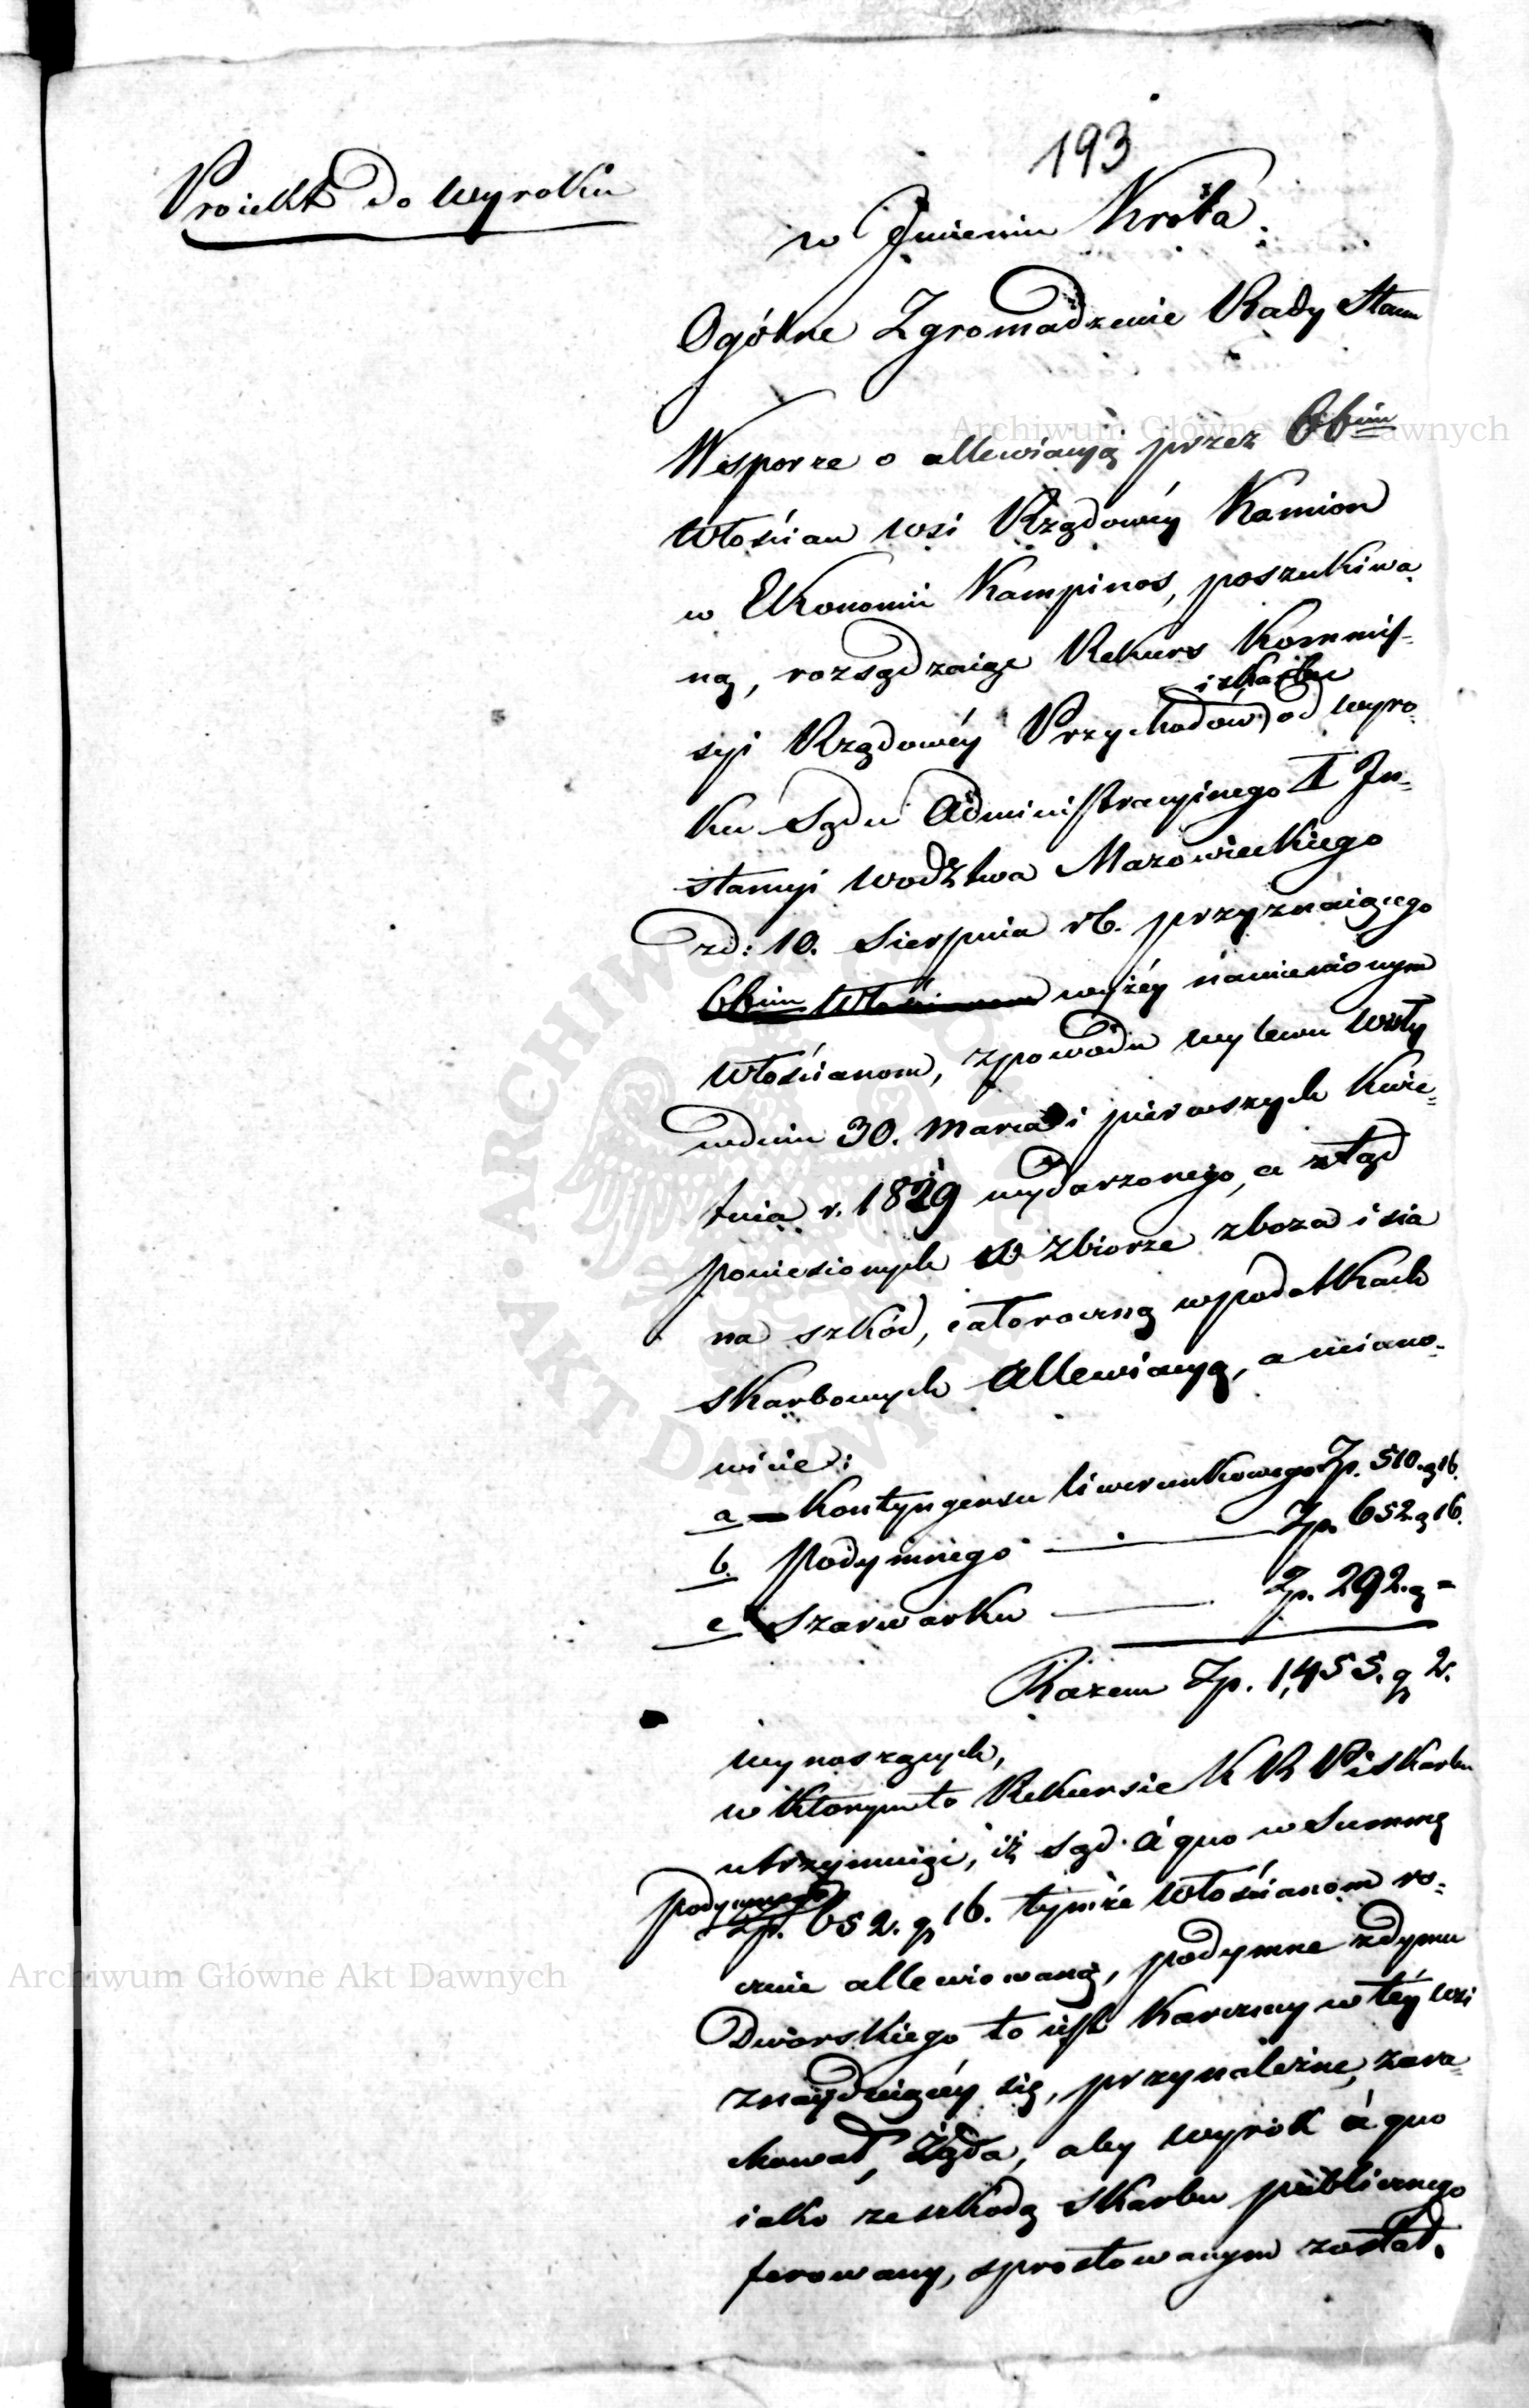 193
Proiekt do Wyroku
w Jmieniu Króla.
Ogólne Zgromadzenie Rady Stanu
W sporze o allewiacyą przez
Włościan wsi Rządowéy Kamion
w Ekonomii Kampinos, poszukiwa-
ną, rozsądzaiąc Rekurs Kommis-
i skarbu
syi Rządowéy Przychodów od wyro-
ku Sądu Administracyinego I In-
stancyi Wodztwa Mazowieckiego
zd: 10. Sierpnia rb. przyznaiącego
wyżéy namienionym
Włościanom, z powodu wylewu Wisły
w dniu 30. Marca i pierwszych Kwie-
tnia r. 1829 wydarzonego, a ztąd
poniesionych w zbiorze zboża i sia
na szkód, całoroczną w podatkach
skarbowych Allewiacyą, a miano-
wicie:
a Kontyngensu liwerunkowego Zp. 510. g 16.
b. Podymnego Zp. 652. g 16.
c Szarwarku Zp. 292. g =
Razem Zp. 1,455. g 2.
wynoszących,
w którymto Rekursie K R P i Skarbu
utrzymuiąc, iż Sąd à quo w Summę
podymnego
Zp. 652. g 16. tymże Włościanom ro-
cznie allewiowaną, podymne z dymu
Dworskiego to iest Karczmy w téy wsi
znayduiącéy się, przynależne, zara-
chował, Żąda, aby wyrok à quo
iako ze szkodą Skarbu publicznego
ferowany, sprostowanym został.
Archiwum Główne Akt Dawnych
Archiwum Główne Akt Dawnych
ARCHIWUM GŁÓWNE AKT DAWNYCH